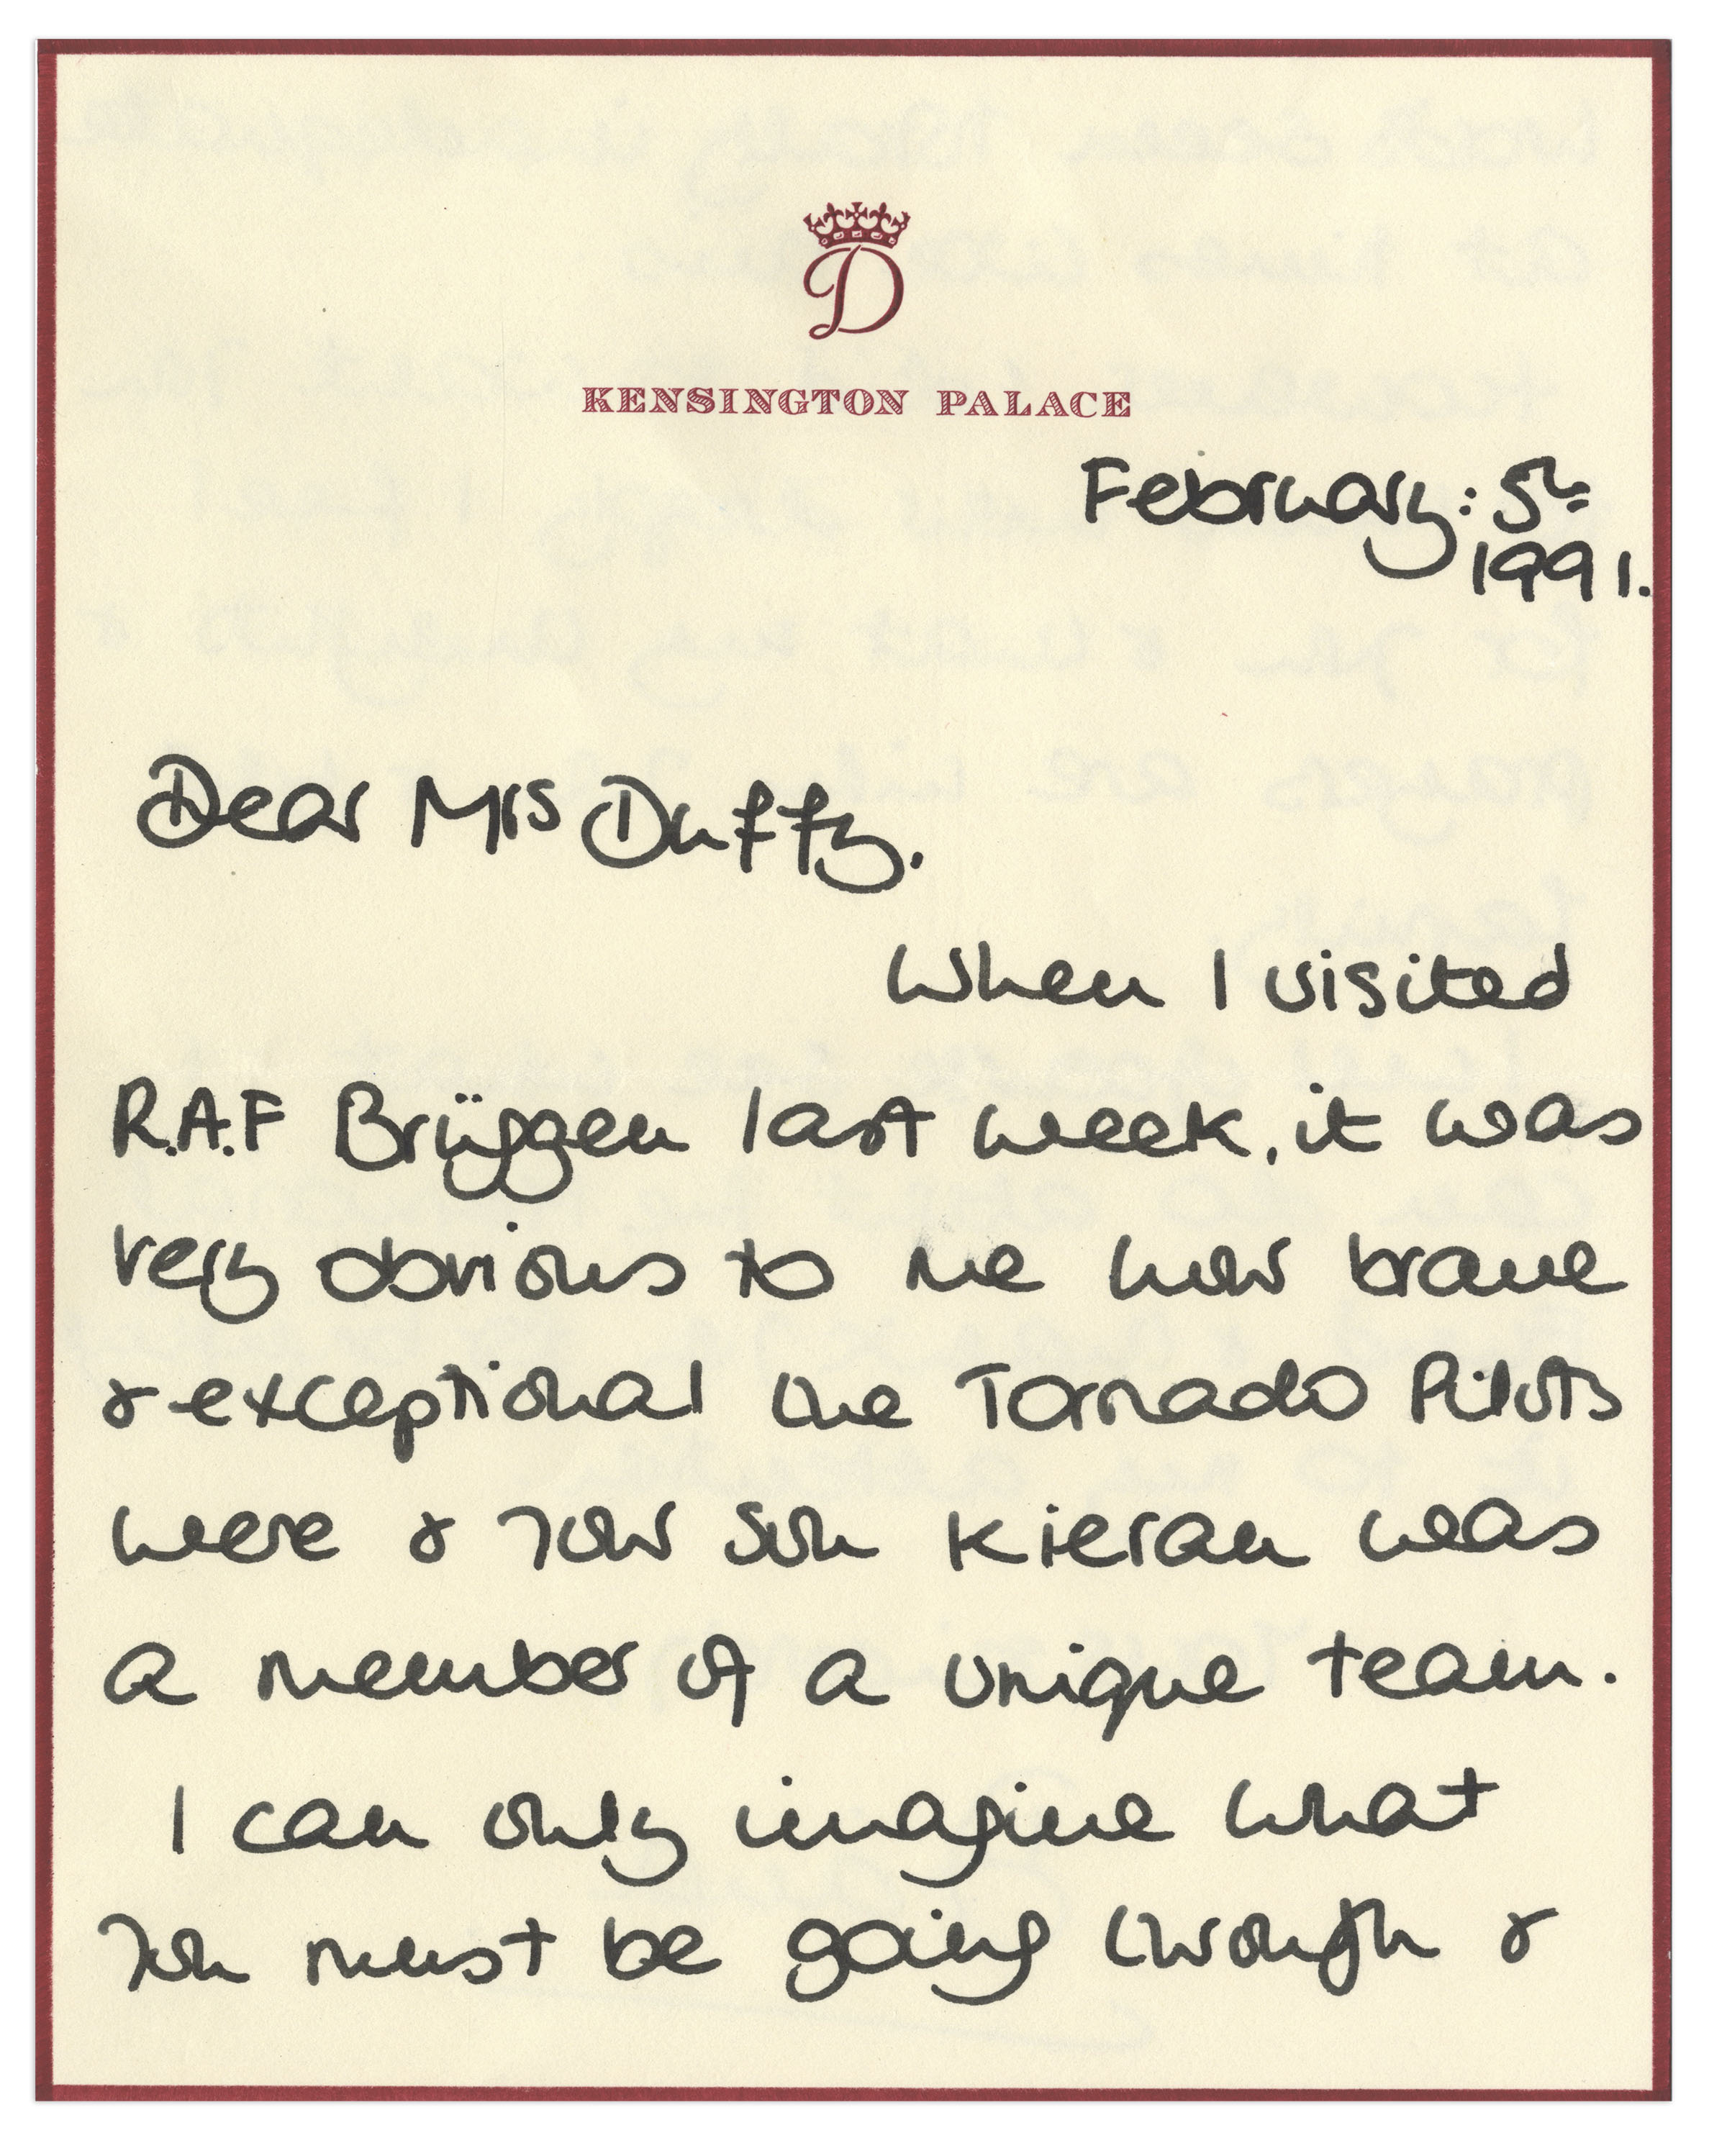 D
KENSINGTON PALACE
February: 5th
1991.
Dear Mrs Duffy.
When I visited
R.A.F Brüggen last week, it was
very obvious to me how brave
& exceptional the Tornado Pilots
were & your son Kieran was
a member of a unique team.
I can only imagine what
you must be going through &